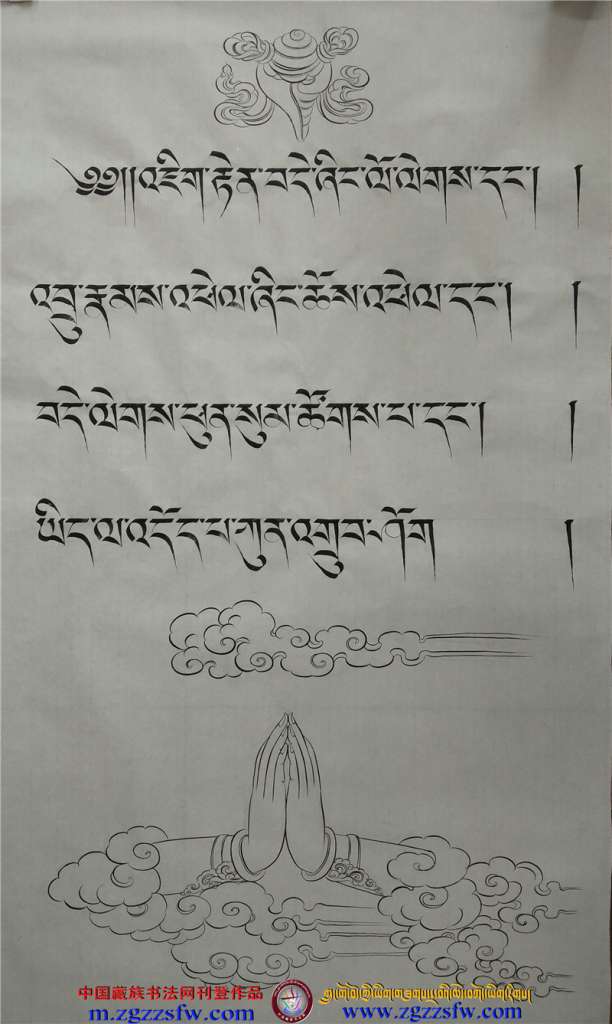 ༄༅།།འཇིག་རྟེན་བདེ་ཞིང་ལོ་ལེགས་དང་། །
འབྲུ་རྣམས་འཕེལ་ཞིང་ཆོས་འཕེལ་དང་། །
བདེ་ལེགས་ཕུན་སུམ་ཚོགས་པ་དང་། །
ཡིད་ལ་འདོད་པ་ཀུན་འགྲུབ་ཤོག །
中国藏族书法网刊登作品
m.zgzzsfw.com www.zgzzsfw.com